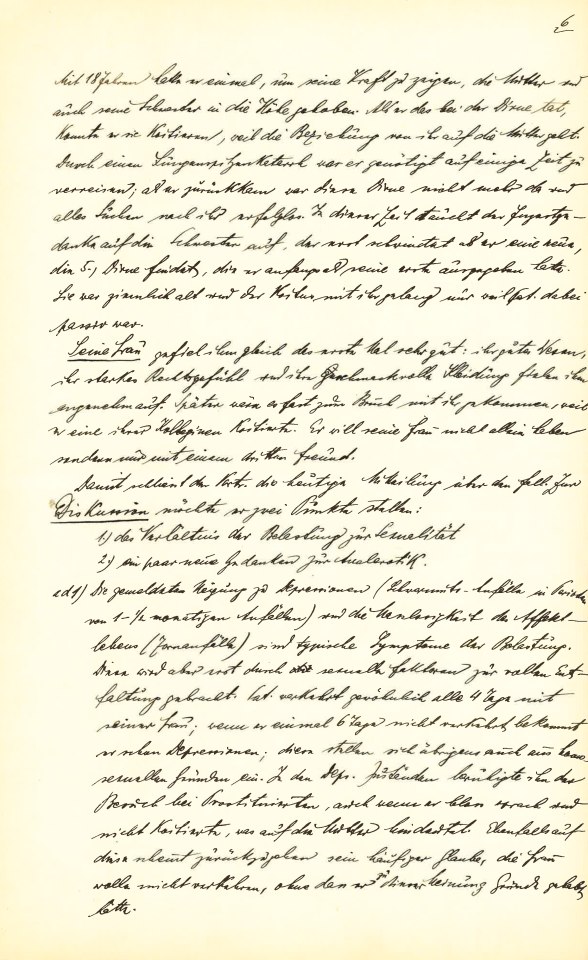 6
Mit 18 Jahren hatte er einmal, um seine Kraft zu zeigen, die Mutter und
auch seine Schwester in die Höhe gehoben. Als er das bei der Dirne tat,
konnte er sie koitieren, weil die Beziehung von ihr auf die Mutter geht.
Durch einen Lungenspitzenkatarrh war er genötigt auf einige Zeit zu
verreisen; als er zurückkam war diese Dirne nicht mehr da und
alles Suchen nach ihr erfolglos. In dieser Zeit taucht der Inzestge-
danke auf die Schwester auf, der erst schwindet als er eine neue,
die 5., Dirne findet, die er anfangs als seine erste ausgegeben hatte.
Sie war ziemlich alt und der Koitus mit ihr gelang nur weil Pat. dabei
passiv war.
Seine Frau gefiel ihm gleich das erste Mal sehr gut: ihr gutes Wesen,
ihr starkes Rechtsgefühl und ihre geschmackvolle Kleidung fielen ihm
angenehm auf. Später wäre es fast zum Bruch mit ihr gekommen, weil
er eine ihrer Kolleginen koitierte. Er will seine Frau nicht allein leben
sondern nur mit einem dritten Freund.
Damit schliesst der Vortr. die heutige Mitteilung über den Fall. Zur
Diskussion möchte er zwei Punkte stellen:
1.) das Verhältnis der Belastung zur Sexualität
2.) ein paar neue Gedanken zur Analerotik.
ad 1) Die gemeldeten Neigung zu Depressionen (Schwermuts-Anfälle in Perioden
von 1-½ monatigen Anfällen) und die Masslosigkeit des Affekt-
lebens (Zornanfälle) sind typische Symptome der Belastung.
Diese wird aber erst durch die sexuellen Faktoren zur vollen Ent-
faltung gebracht. Pat. verkehrt gewöhnlich alle 4 Tage mit
seiner Frau; wenn er einmal 6 Tage nicht verkehrt bekommt
er schon Depressionen; diese stellen sich übrigens auch aus homo-
sexuellen Gründen ein. In den Depr. Zuständen beruhigte ihn der
Besuch bei Prostituierten, auch wenn er bloss sprach und
nicht koitierte, was auf die Mutter hindeutet. Ebenfalls auf
diese scheint zurückzugehen sein häufiger Glaube, die Frau
wolle nicht verkehren, ohne dass er zu dieser Meinung Gründe gehabt
hätte.